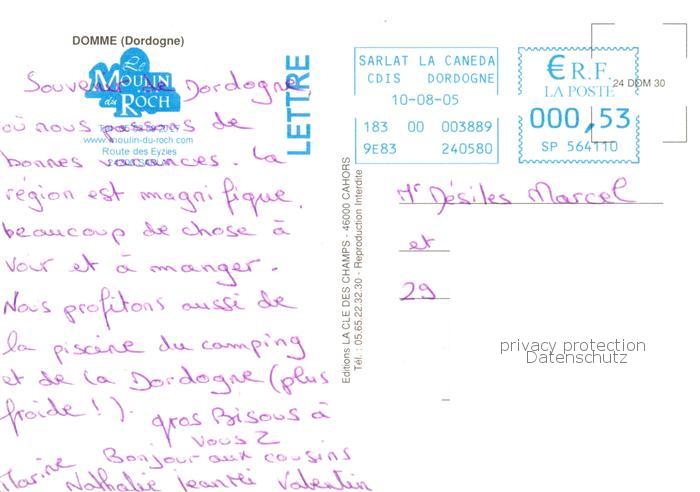 DOMME (Dordogne)
Le
MOULIN
du
ROCH
www.moulin-du-roch.com
Route des Eyzies
Souvenir de Dordogne,
où nous passons de
bonnes vacances. La
région est magnifique,
beaucoup de chose à
voir et à manger.
Nous profitons aussi de
la piscine du camping
et de la Dordogne (plus
froide!). gros Bisous à
vous 2
Bonjour aux cousins
Marine Nathalie Valentin
LETTRE
Editions LA CLE DES CHAMPS - 46000 CAHORS
Tél. : 05.65.22.32.30 - Reproduction Interdite
SARLAT LA CANEDA
CDIS DORDOGNE
10-08-05
183 00 003889
9E83 240580
€ R.F.
LA POSTE
000,53
SP 564110
24 DOM 30
Mr Désiles Marcel
et
29
privacy protection
Datenschutz